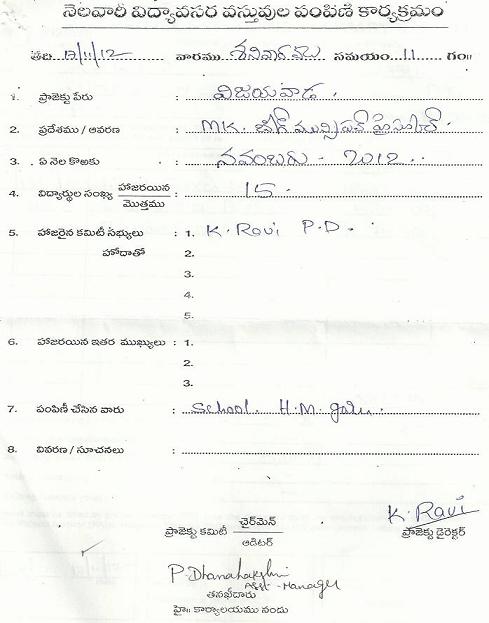 నెలవారీ విద్యావసర వస్తువుల పంపిణీ కార్యక్రమం
తేది 17/11/12 వారము శనివారము సమయం 11 గం॥
1. ప్రాజెక్టు పేరు : విజయవాడ.
2. ప్రదేశము / ఆవరణ : MK. బేగ్ మున్సిపల్ హైస్కూల్.
3. ఏ నెల కొఱకు : నవంబరు - 2012
4. విద్యార్థుల సంఖ్య హాజరయిన / మొత్తము : 15.
5. హాజరైన కమిటీ సభ్యులు : 1. K. Ravi P.D.
హోదాతో 2.
3.
4.
5.
6. హాజరయిన ఇతర ముఖ్యులు : 1.
2.
3.
7. పంపిణీ చేసిన వారు : School. H.M. garu.
8. వివరణ / సూచనలు :
K. Ravi
ప్రాజెక్టు కమిటీ ఛైర్‌మెన్ / ఆడిటర్ ప్రాజెక్టు డైరెక్టర్
Asst-Manager
తనఖీదారు
హై॥ కార్యాలయము నందు